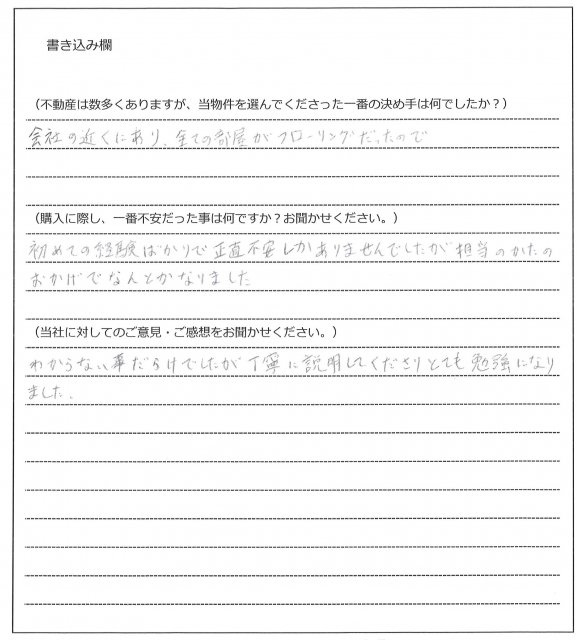 書き込み欄
（不動産は数多くありますが、当物件を選んでくださった一番の決め手は何でしたか？）
会社の近くにあり、全ての部屋がフローリングだったので
（購入に際し、一番不安だった事は何ですか？お聞かせください。）
初めての経験ばかりで正直不安しかありませんでしたが担当のかたの
おかげでなんとかなりました
（当社に対してのご意見・ご感想をお聞かせください。）
わからない事だらけでしたが丁寧に説明してくださりとても勉強になり
ました.